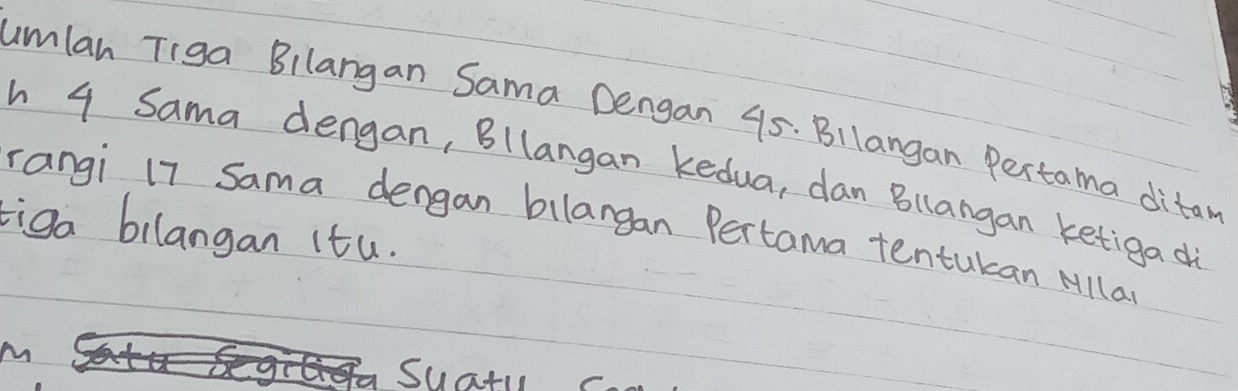 umlah Tiga Bilangan Sama Dengan 45. Bilangan Pertama ditam
h 4 Sama dengan, Bilangan kedua, dan Bilangan ketiga di
rangi 17 Sama dengan bilangan Pertama tentukan Nilai
tiga bilangan itu.
m Suatu